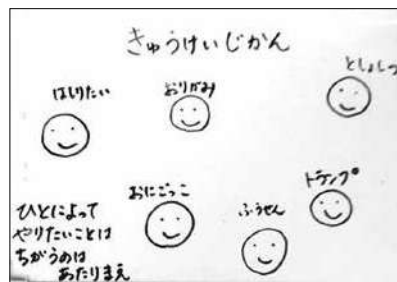 きゅうけいじかん
はしりたい
おりがみ
としょしつ
おにごっこ
ふうせん
トランプ
ひとによって
やりたいことは
ちがうのは
あたりまえ